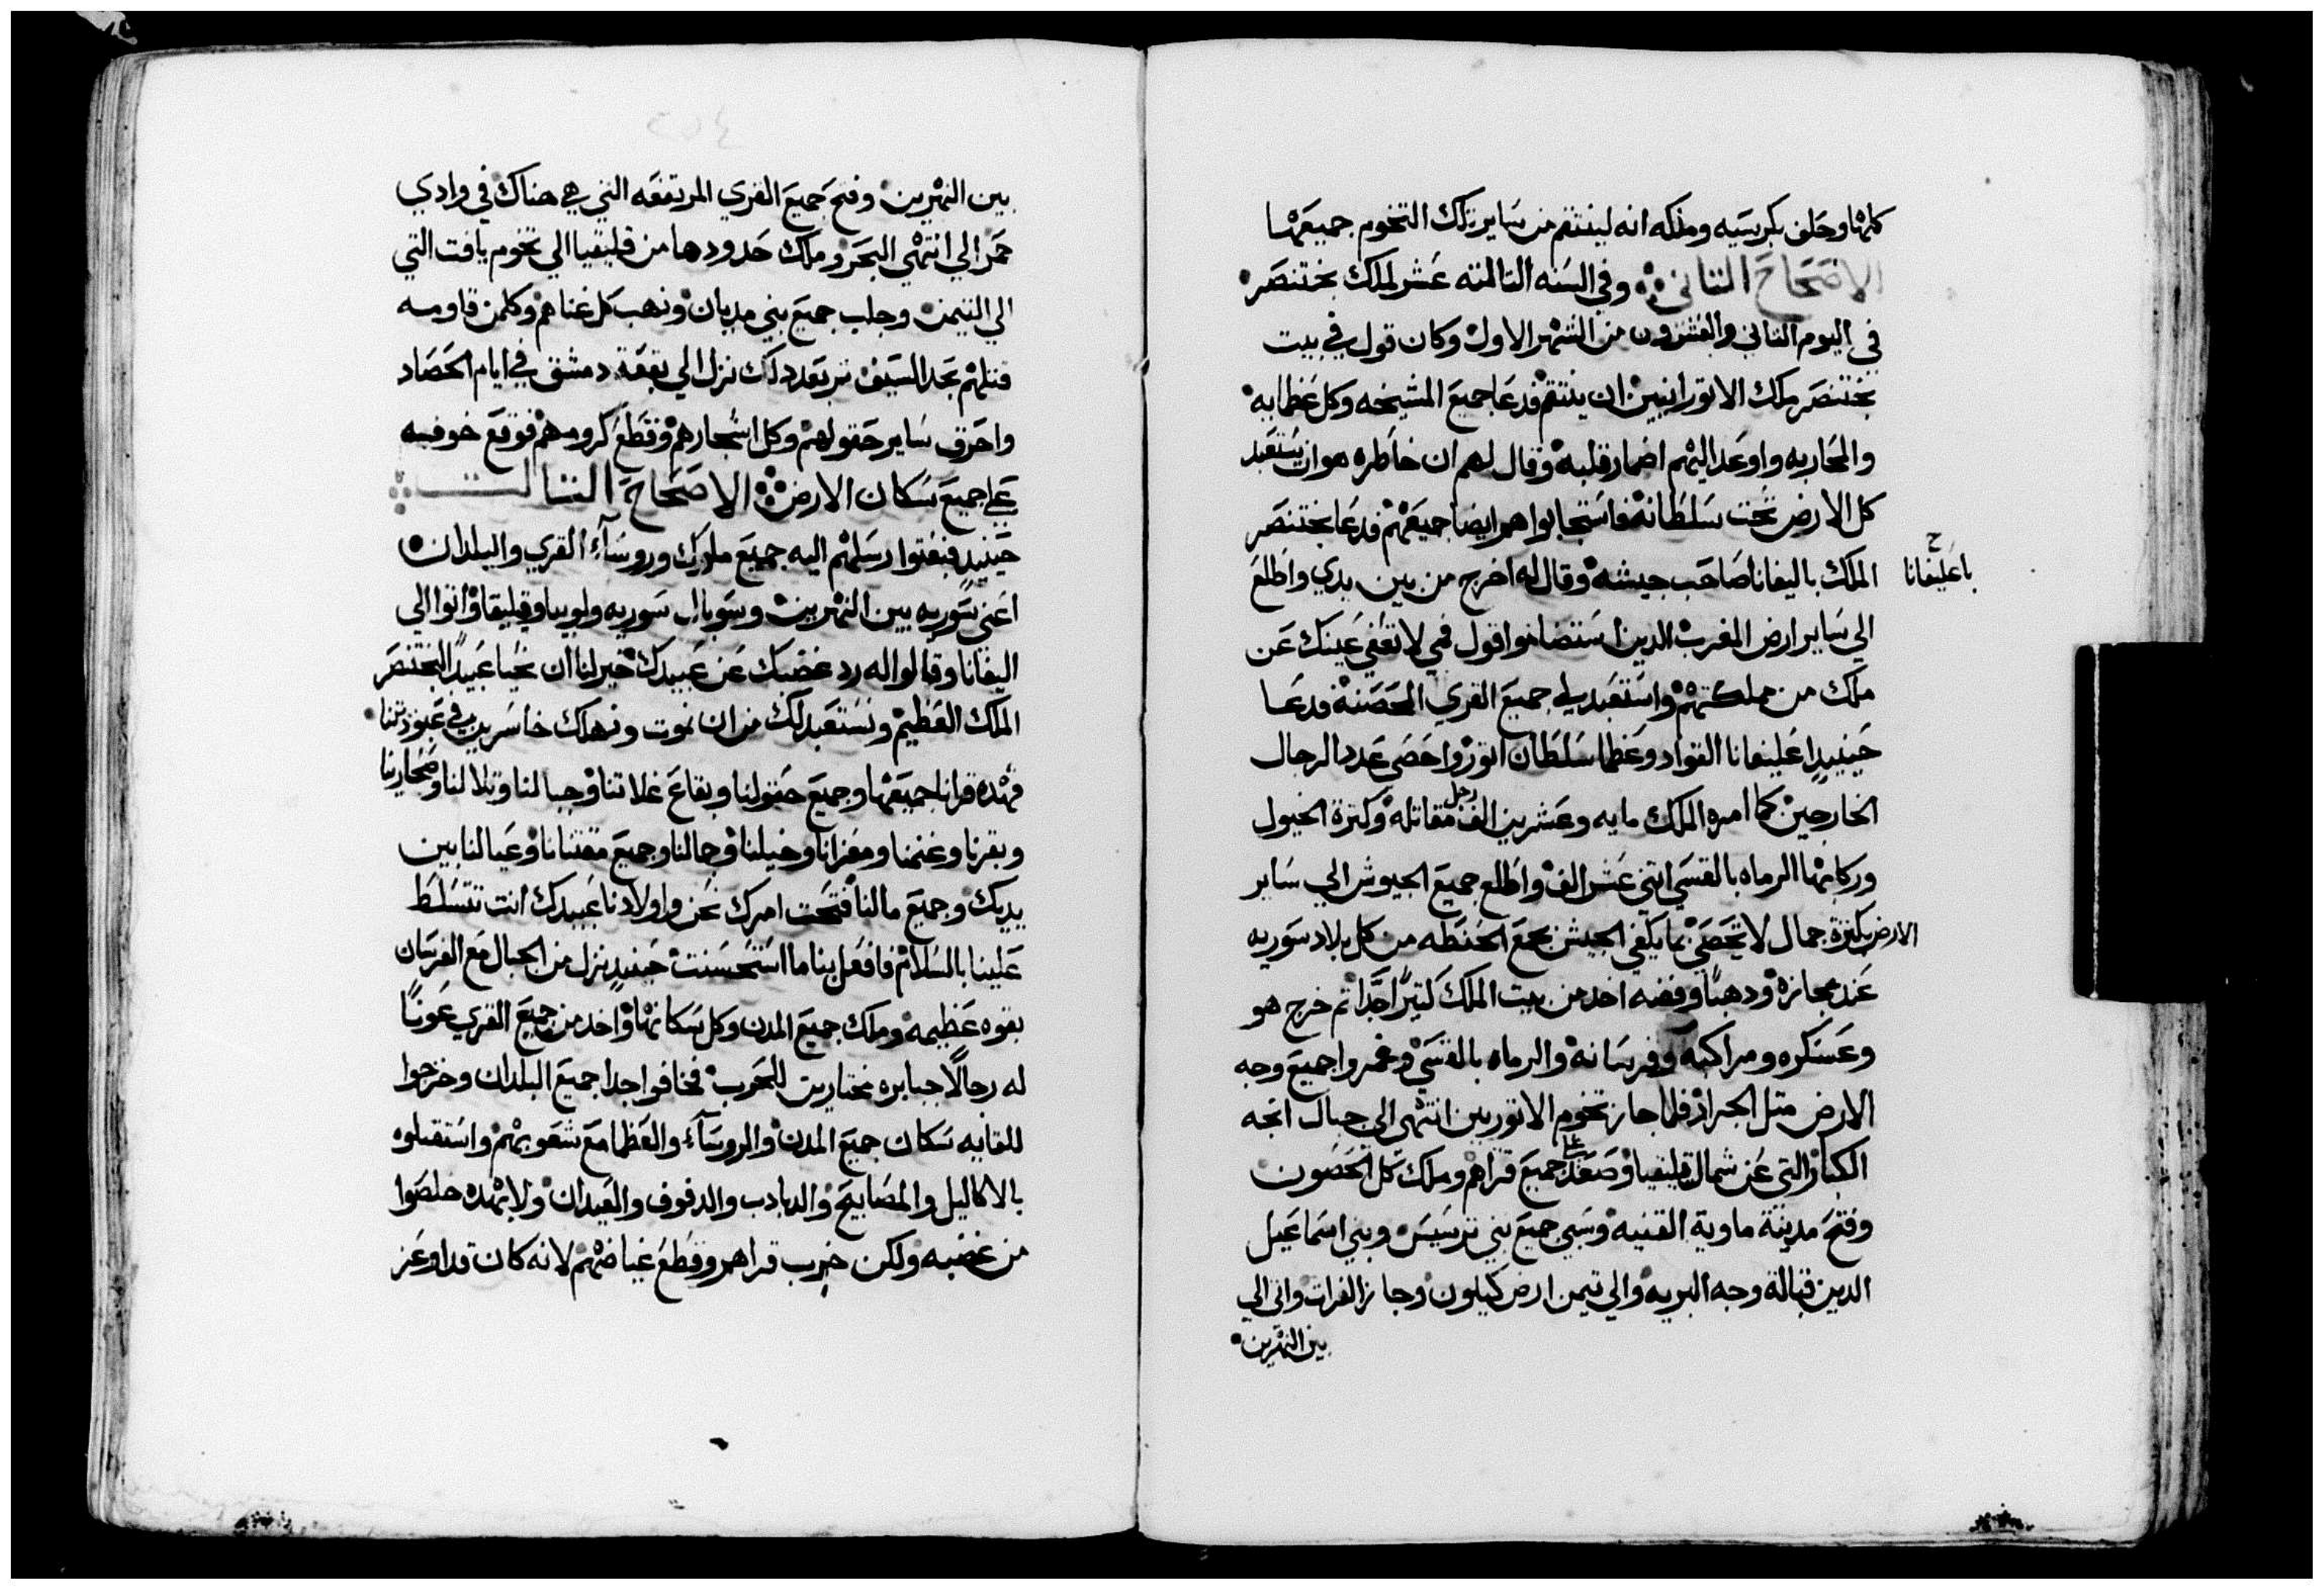 كلها وحلف بكرسيه وملكه انه لينتقم من ساير تلك التخوم جميعها
الاصحاح التاني وفي السنه التالته عشر لملك بختنصر
في اليوم التاني والعشرون من الشهر الاول وكان قول في بيت
بختنصر ملك الاتورانيين ان ينتقم فدعا جميع المشيخه وكل عظمايه
والمحاربه واوعد اليهم اضمار قلبه وقال لهم ان خاطره هو ان يستعبد
كل الارض تحت سلطانه فاستجابوا هم ايضا جميعهم فدعا بختنصر
الملك باليفانا صاحب جيشه وقال له اخرج من بين يدي واطلع
باعليفانا
الي ساير ارض المغرب الدين استضامنوا قول فمي لا تعفي عينك عن
ملك من مملكتهم واستعبد لي جميع القري المحصنه فدعا
حينيدٍ اعليفانا القواد وعظما سلطان اتور واحصي عدد الرجال
الخارجين كما امره الملك مايه وعشرين الف رجل مقاتله وكترة الخيول
وركابها الرماه بالقسي اتني عشر الف واطلع جميع الجيوش الي ساير
الارض بكترة جمال لا تحصي بما يكفي الجيش بجمع الحنطه من كل بلاد سوريه
عند مجازه ودهبًا وفضه اخد من بيت الملك كتيرًا جدًا تم خرج هو
وعسكره ومراكبه وفرسانه والرماه بالقسي وغمروا جميع وجه
الارض متل الجراد فلما جاز تخوم الاتوريين انتهي الي جبال اتجه
الكبار التي عن شمال قليقيا وصعد علي جميع قراهم وملك كل الحصون
وفتح مدينة ماوية القنيه وسبي جميع بني ترسيس وبني اسماعيل
الدين قبالة وجه البريه والي تيمن ارض كيلون وجاز الفرات واتي الي
بين النهرين
بين النهرين وفتح جميع القري المرتفعه التي هي هناك في وادي
حمر الي انتهي البحر وملك حدودها من قليقيا الي تخوم يافت التي
الي التيمن وجلب جميع بني مديان ونهب كل غناهم وكلمن قاومه
قتلهم بحد السيف تم بعد دلك نزل الي بقعة دمشق في ايام الحصاد
واحرق ساير حقولهم وكل اشجارهم وقطع كرومهم فوقع خوفه
علي جميع سكان الارض الاصحاح التالت
حينيدٍ فبعتوا رسلهم اليه جميع ملوك وروسآء القري والبلدان
اعني سوريه بين النهرين وسوبال سوريه ولوبيا وقيليقا واتوا الي
اليفانا وقالوا له رد غضبك عن عبيدك خير لنا ان نحيا عبيدًا لبختنصر
الملك العظيم ونستعبد لك من ان نموت ونهلك خاسرين في عبودتنا
فهده قرانا جميعها وجميع حقولنا وبقاع غلاتنا وجبالنا وتلالنا وصحارينا
وبقرنا وغنمنا ومعزانا وخيلنا وجمالنا وجميع مقتنانا وعيالنا بين
يديك وجميع مالنا فتحت امرك نحن واولادنا عبيدك انت تتسلط
علينا بالسلام فافعل بنا ما استحسنت حينيدٍ نزل من الجبال مع الفرسان
بقوه عظيمه وملك جميع المدن وكل سكانها واخد من جميع القري عونًا
له رجالًا جبابره مختارين للحرب فخافوا جدا جميع البلدان وخرجوا
للقايه سكان جميع المدن والروسآء والعظما مع شعوبهم واستقبلوه
بالاكاليل والمصابيح والدبادب والدفوف والعيدان ولا بهده خلصوا
من غضبه ولكن خرب قراهم وقطع غياضهم لانه كان قد اوعز